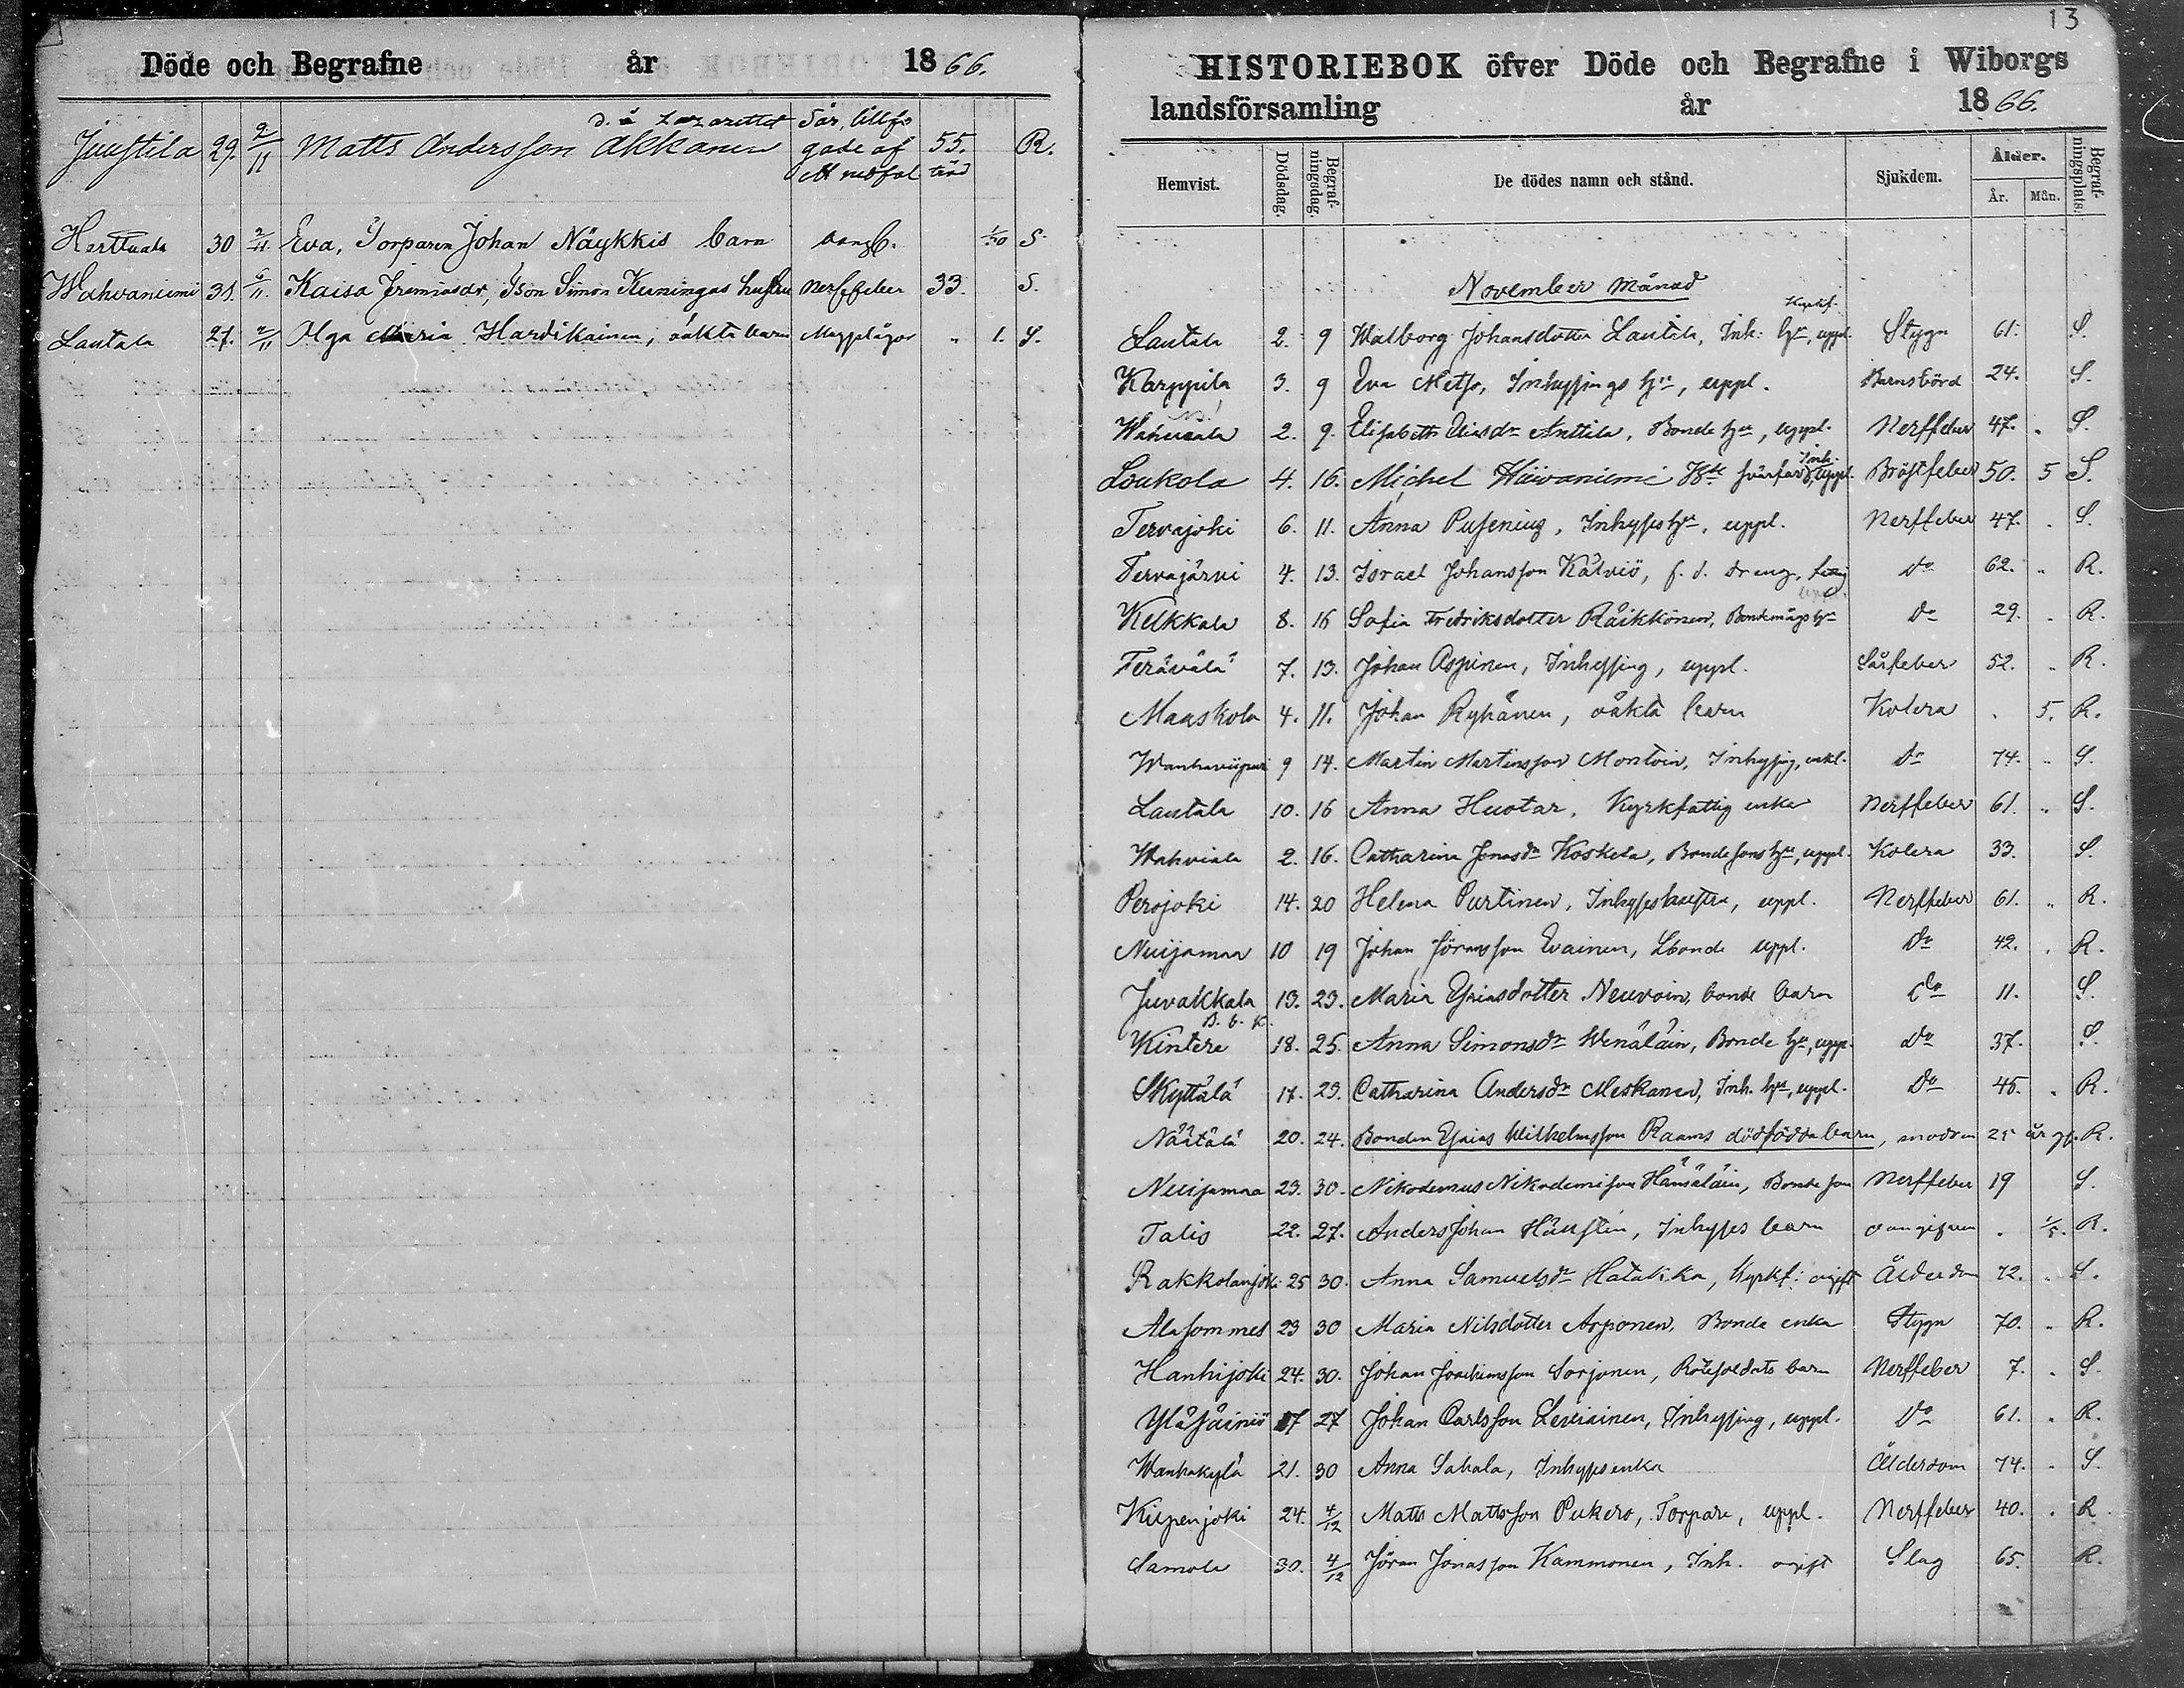 Döde och Begrafne år 1866.
d. å Lazarettet Sår, tillfo
Juustila 29. 2/11 Matts Andersson Akkanen gade af 55. R.
nedfal träd
Herttuala 30 2/11 Eva, Torparen Johan Näykkis barn 1/20 S.
Wahvaniemi 31. 6/11. Kaisa Jremiasdr, Json Simon Kuningas hustru Nerffeber 33. S.
Lautala 27. 2/11 Olga Maria Hardikainen, oäkta barn Magplågor " 1. S.
13
HISTORIEBOK öfver Döde och Begrafne i Wiborgs
landsförsamling år 1866.
Hemvist. Dödsdag. Begrafningsdag. De dödes namn och stånd. Sjukdom. Ålder. År. Mån. Begrafningsplats.
November Månad
Lautala 2. 9 Walborg Johansdotter Lautala, Inh. hu, uppl. Stygn 61. S.
Karppila 3. 9 Eva Metso, Inhysings hu, uppl. Barnsbörd 24. S.
2. 9. Elisabeth Eliasdr Anttila, Bonde hu, uppl. Nerffeber 47. " S.
Loukola 4. 16. Michel Bröstfeber 50. 5 S.
Tervajoki 6. 11. Anna Pusenius, Inhyses hu, uppl. Nerffeber 47. . S.
Tervajärvi 4. 13. Israel Johansson Kälviö, f. d. dreng, Do 62. " R.
Kelkkala 8. 16 Sofia Fredriksdotter Räikkönen, Bondemågs hu Do 29. . R.
Terävälä 7. 13. Johan Aspinen, Inhysing, uppl. Sårfeber 52. " R.
Maaskola 4. 11. Johan Ryhänen, oäkta barn Kolera . 5. R.
Wanhaviipuri 9 14. Martin Martinsson Montoin, Inhysing, enkl. Do 74. " S.
Lautala 10. 16 Anna Huotar, Kyrkfattig enka Nerffeber 61. " S.
Wahviala 2. 16. Catharina Jonasdr Koskela, Bondesons hu, uppl. Kolera 33. S.
Perojoki 14. 20 Helena Purtinen, Inhyseshustru, uppl. Nerffeber 61. " R.
Nuijamaa 10 19 Johan Göransson Evainen, Lbonde uppl. Do 42. . R.
Juvakkala 13. 23. Maria Esaiasdotter Neuvoin, bonde barn Do 11. S.
Kintere 18. 25. Anna Simonsdr Wenäläin, Bonde hu, uppl. Do 37. S.
Skyttälä 17. 23. Catharina Andersdr Meskanen, Inh. hu, uppl. Do 45. . R.
Näätälä 20. 24. Bonden Esaias Wilhelmsson Raams dödfödda barn, modren 25 år gl. R.
Nuijamaa 23. 30. Nikodemus Nikodemisson Hämäläin, Bonde son Nerffeber 19 S.
Talis 22. 27. Anders Johan Häustin, Inhyses barn oangifven . 1/5. R.
Rakkolanjoki 25 30. Anna Samuelsdr Hatakka, Kyrkf: ogift Ålderdom 72. " S.
Alasommes 23 30 Maria Nilsdotter Arponen, Bonde enka Stygn 70. " R.
Hanhijoki 24. 30. Johan Joachimsson Sorjonen, Rotesoldats barn Nerffeber 7. . S.
Yläsäiniö 17 27 Johan Carlsson Leviainen, Inhysing, uppl. Do 61. " R.
Wanhakylä 21. 30 Anna Sahala, Inhyses enka Ålderdom 74. " S.
Kilpenjoki 24. 4/12 Matts Mattsson Pukero, Torpare, uppl. Nerffeber 40. . R.
Samola 30. 4/12 Jöran Jonasson Kammonen, Inh. ogift Slag 65. R.